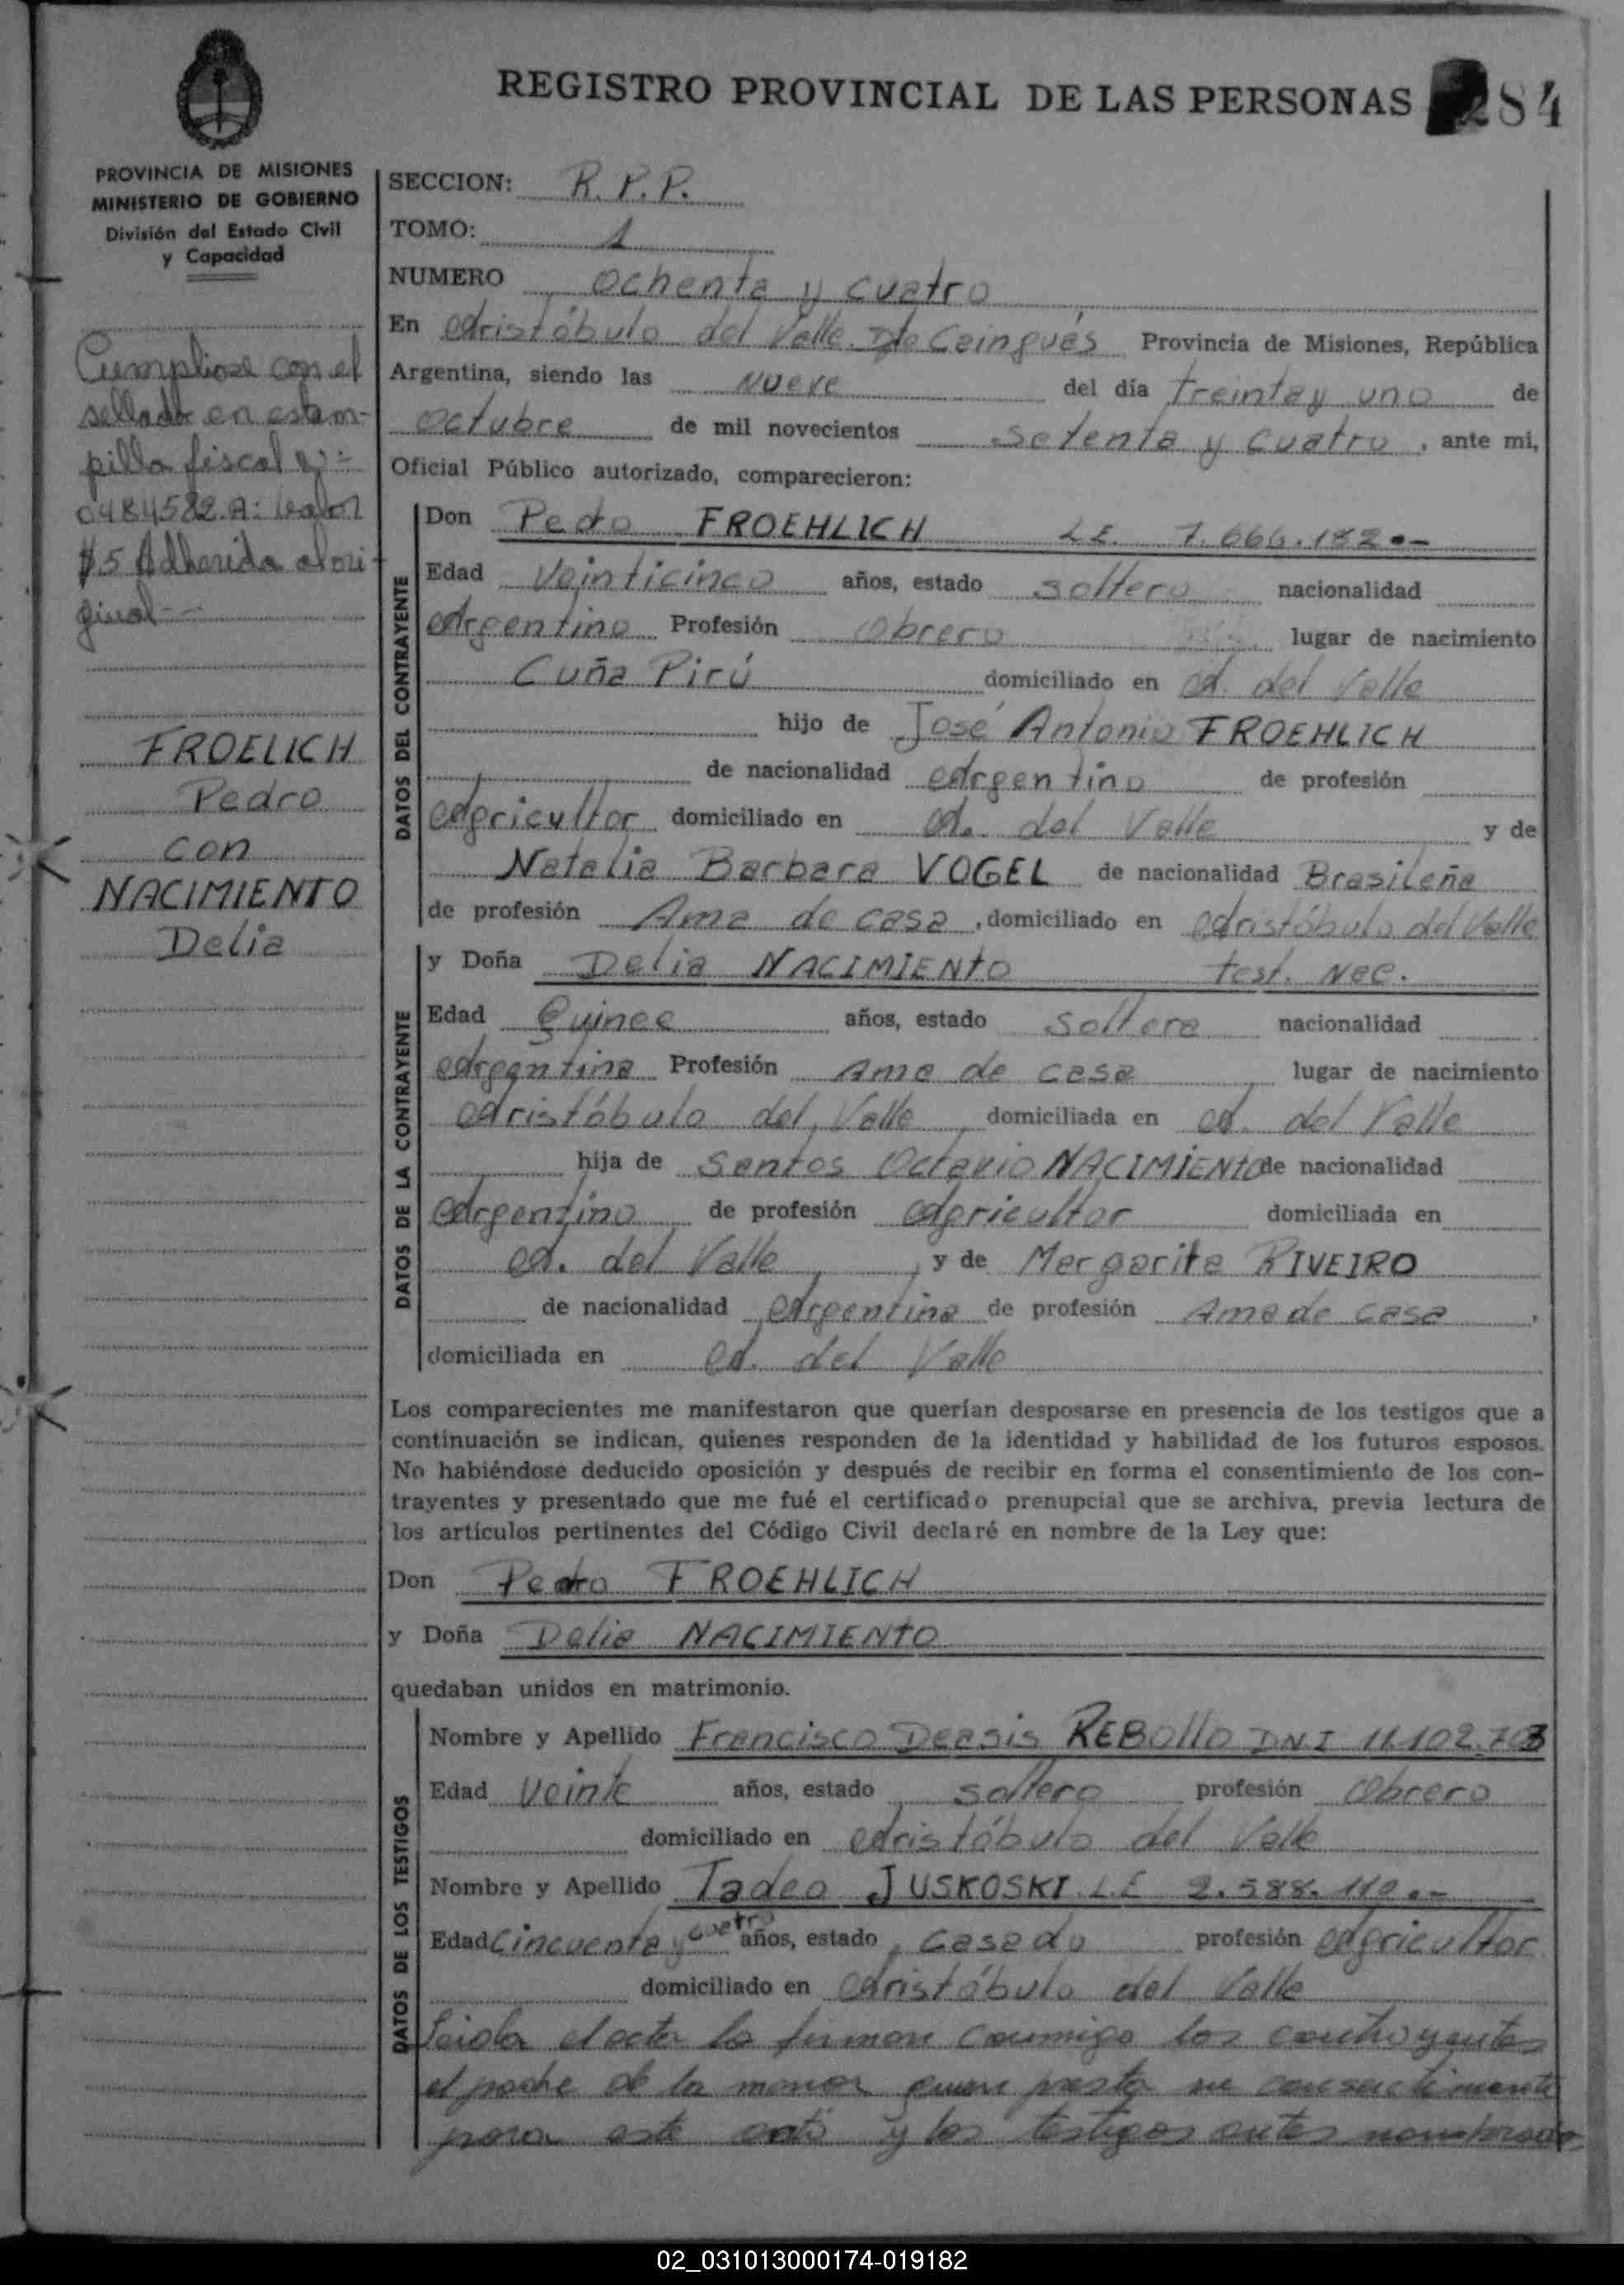 REGISTRO PROVINCIAL DE LAS PERSONAS 284
PROVINCIA DE MISIONES
MINISTERIO DE GOBIERNO
División del Estado Civil
y Capacidad
Cumpliose con el
sellado en estam-
pilla fiscal
0484522.A: valor
$5 Adherida al ori-
ginal
FROELICH
Pedro
con
NACIMIENTO
Delia
SECCION: R.P.P.
TOMO: 1
NUMERO Ochenta y cuatro
En Aristóbulo del Valle. Dto Cainguás Provincia de Misiones, República
Argentina, siendo las Nueve del día treinta y uno de
Octubre de mil novecientos setenta y cuatro, ante mi,
Oficial Público autorizado, comparecieron:
DATOS DEL CONTRAYENTE
Don Pedro FROEHLICH L.E. 7.666.182.-
Edad Veinticinco años, estado soltero nacionalidad
Argentino Profesión Obrero lugar de nacimiento
Cuña Pirú domiciliado en A. del Valle
hijo de José Antonio FROEHLICH
de nacionalidad Argentino de profesión
Agricultor domiciliado en A. del Valle y de
Natalia Barbara VOGEL de nacionalidad Brasileña
de profesión Ama de casa, domiciliado en Aristóbulo del Valle
DATOS DE LA CONTRAYENTE
y Doña Delia NACIMIENTO test. Nac.
Edad Quince años, estado Soltera nacionalidad
Argentina Profesión Ama de casa lugar de nacimiento
Aristóbulo del Valle domiciliada en A. del Valle
hija de Santos Octavio NACIMIENTO de nacionalidad
Argentino de profesión Agricultor domiciliada en
A. del Valle, y de Margarita RIVEIRO
de nacionalidad Argentina de profesión Ama de casa,
domiciliada en A. del Valle
Los comparecientes me manifestaron que querían desposarse en presencia de los testigos que a
continuación se indican, quienes responden de la identidad y habilidad de los futuros esposos.
No habiéndose deducido oposición y después de recibir en forma el consentimiento de los con-
trayentes y presentado que me fué el certificado prenupcial que se archiva, previa lectura de
los artículos pertinentes del Código Civil declaré en nombre de la Ley que:
Don Pedro FROEHLICH
y Doña Delia NACIMIENTO
quedaban unidos en matrimonio.
DATOS DE LOS TESTIGOS
Nombre y Apellido Francisco Deasis REBOllO DNI 11.102.703
Edad Veinte años, estado soltero profesión Obrero
domiciliado en Aristóbulo del Valle
Nombre y Apellido Tadeo JUSKOSKI L.E 2.588.110.-
Edad Cincuenta y cuatro años, estado casado profesión Agricultor
domiciliado en Aristóbulo del Valle
Leida el acta la firman conmigo los contrayentes
el padre de la menor quien presta su consentimiento
para este acto y los testigos antes nombrados
02_031013000174-019182